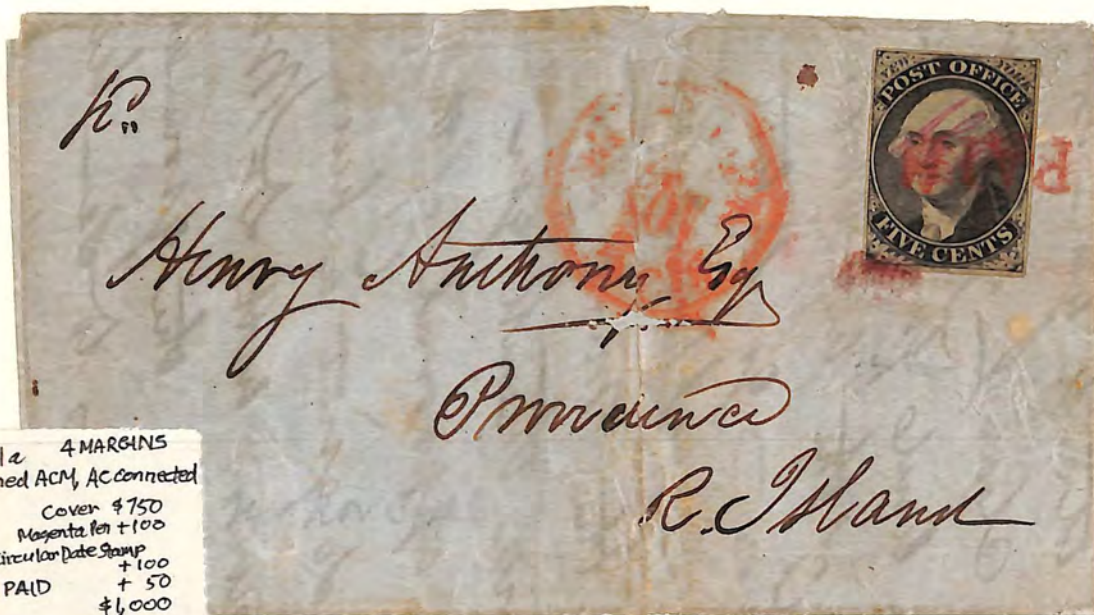 POST OFFICE
FIVE CENTS
Henry Anthony Esq
Providence
R. Island
4 MARGINS
ACM, AC connected
Cover $750
Magenta Pen +100
Circular Date Stamp
+100
PAID + 50
$1,000